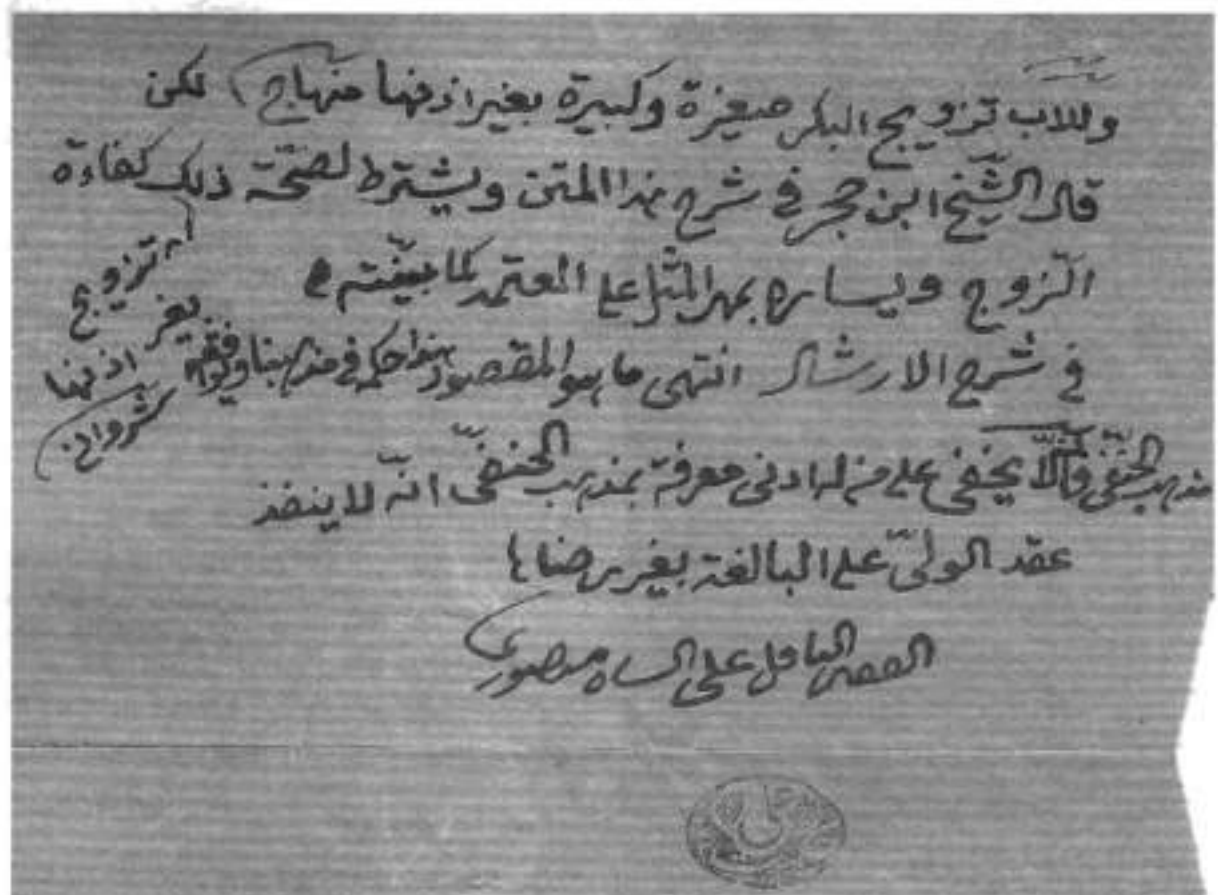 وللاب تزويج البكر صغيرة وكبيرة بغير اذنها منهاج لكن
قال الشيخ ابن حجر في شرح هذا المتن ويشترط لصحّة ذلك كفاءة
الزوج ويساره بمهر المثل على المعتمد كما بينته
في شرح الارشاد انتهى ما هو المقصود هذا حكم في مذهبنا
اى تزويج
بغير
اذنها
شرواني
مذهب الحنفى يخفى على من له ادنى معرفة بمذهب الحنفى انّه لا ينفذ
عقد الولىّ على البالغة بغير رضاها
الفقير على منصورى